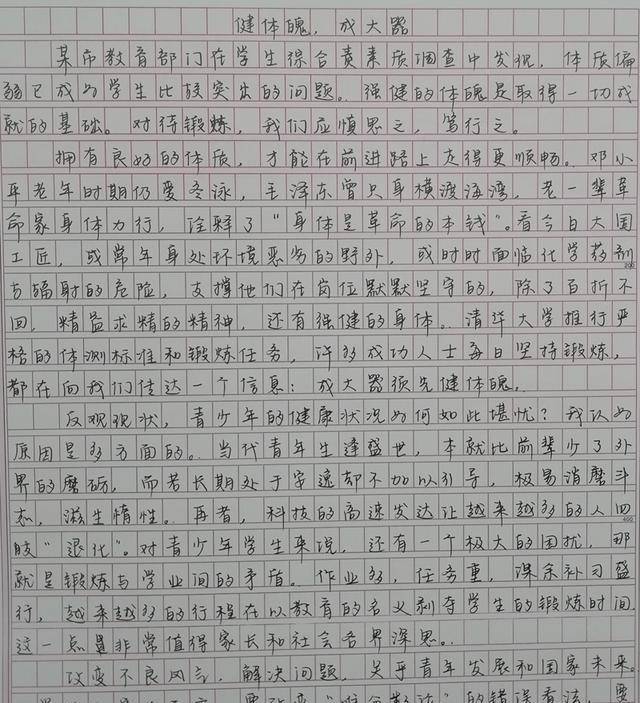 健体魄，成大器
某市教育部门在学生综合素质调查中发现，体质偏
弱已成为学生比较突出的问题。强健的体魄是取得一切成
就的基础。对待锻炼，我们应慎思之，笃行之。
拥有良好的体质，才能在前进路上走得更顺畅。邓小
平老年时期仍爱冬泳，毛泽东曾只身横渡海湾，老一辈革
命家身体力行，诠释了“身体是革命的本钱”。看今日大国
工匠，或常年身处环境恶劣的野外，或时时面临化学药剂
与辐射的危险，支撑他们在岗位默默坚守的，除了百折不
回，精益求精的精神，还有强健的身体。清华大学推行严
格的体测标准和锻炼任务，许多成功人士每日坚持锻炼，
都在向我们传达一个信息：成大器须先健体魄。
反观现状，青少年的健康状况为何如此堪忧？我认为
原因是多方面的。当代青年生逢盛世，本就比前辈少了外
界的磨砺，而若长期处于安逸却不加以引导，极易消磨斗
志，滋生惰性。再者，科技的高速发达让越来越多的人四
400
肢“退化”。对青少年学生来说，还有一个极大的困扰，那
就是锻炼与学业间的矛盾。作业多，任务重，课余补习盛
行，越来越多的行程在以教育的名义剥夺学生的锻炼时间，
这一点是非常值得家长和社会各界深思。
改变不良风气，解决问题，关乎青年发展和国家未来。
的错误看法，要